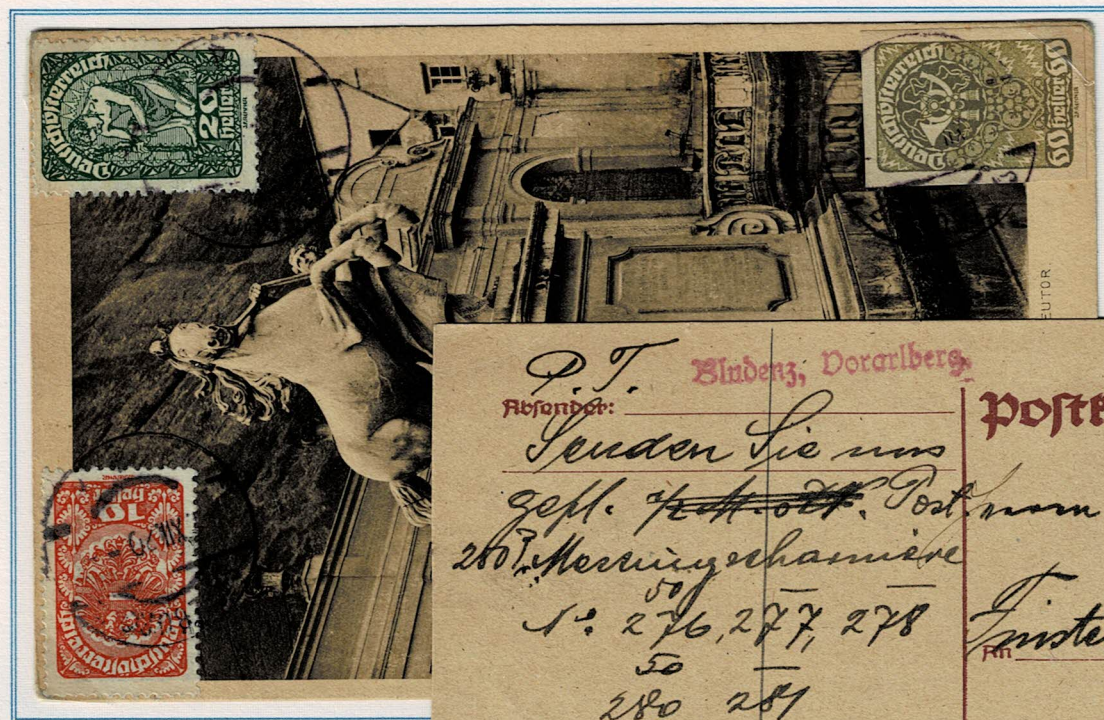 Deutschösterreich
20
Heller
Deutschösterreich
60
Heller 60
10
Heller
Deutschösterreich
XII 20
EUTOR
P. T.
Bludenz, Vorarlberg.
Absender:
Postk
Senden Sie uns
gefl. Post
280
Messingscharniere
50
No. 276, 277, 278
An
50
280 281